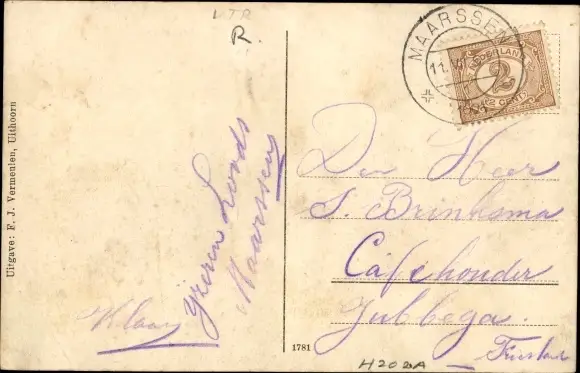 UTR
R.
MAARSSEN
11.
NEDERLAND
2½
2½ CENT
Uitgave: F. J. Vermeulen, Uithoorn
Yzeren Loods
Maarssen
Klaas
Den Heer
S. Brinksma
Caféhouder
Jubbega.
Friesland
1781
H202A